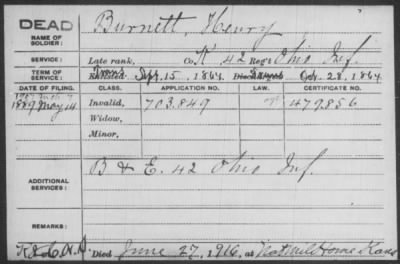 DEAD
NAME OF SOLDIER:
Burnett, Henry
SERVICE:
Late rank, Co. K 42 Reg't Ohio Inf.
TERM OF SERVICE:
Enlisted Sept. 15, 1864. Discharged Oct. 28, 1864
DATE OF FILING. CLASS. APPLICATION NO. LAW. CERTIFICATE NO.
1889 May 14 Invalid, 703.849 479.856
Widow,
Minor,
ADDITIONAL SERVICES:
B & E. 42 Ohio Inf.
REMARKS:
Died June 27, 1916, at Nat Mil Home Kans